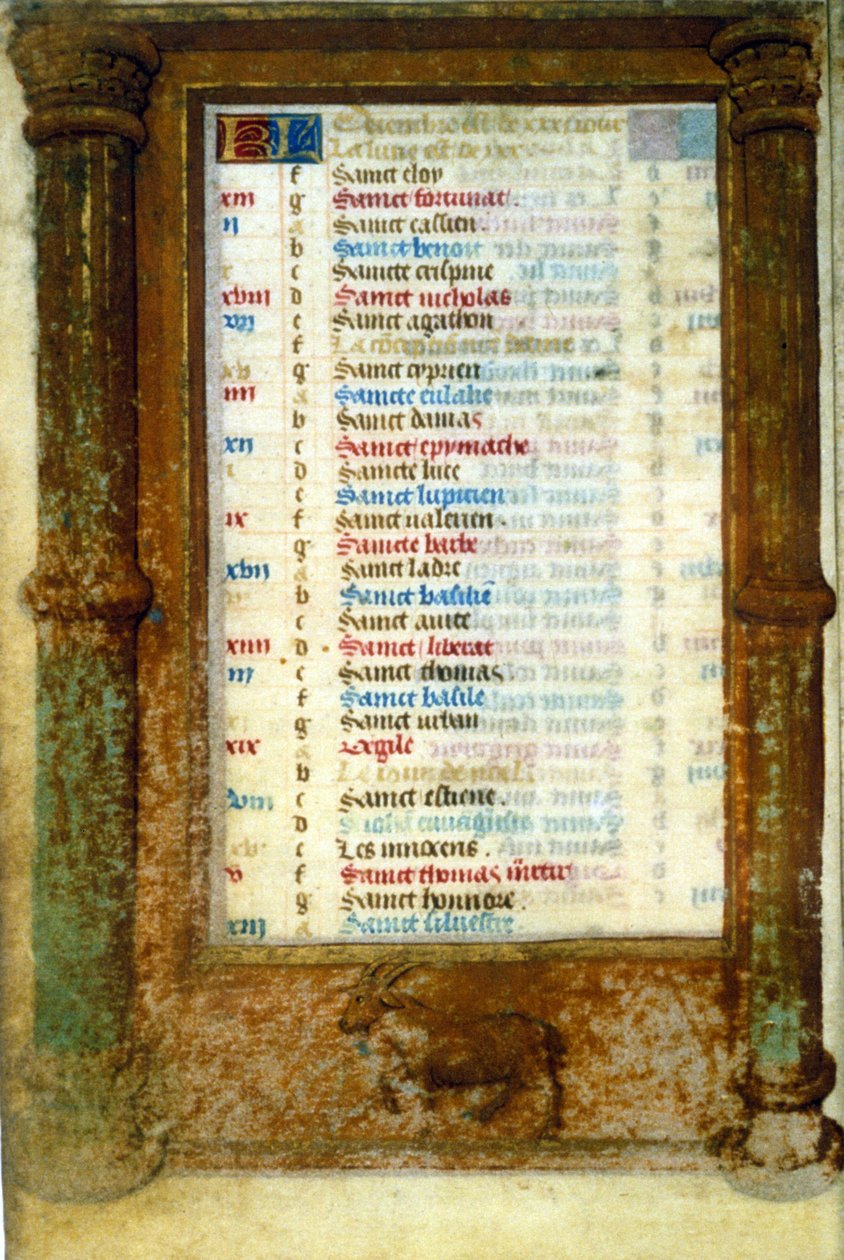 KL Decembre est de xxxi jour
La lune est de
f Sainct eloy
xiii g Sainct fortunat.
ii a Sainct cassien.
b Sainct benoit
x c Saincte crispine
xviii d Sainct nicholas
vii e Sainct agathon
f La nostre dame
xv g Sainct cyprien
iiii a Saincte eulalie
b Sainct damas
xii c Sainct epymache
i d Saincte luce
e Sainct lupicien
ix f Sainct valerien.
g Saincte barbe
xvii a Sainct ladre
b Sainct basilie
c Sainct avite
xiiii d Sainct liberat
iii e Sainct thomas
f Sainct basile
g Sainct urban
xix a Vigile
b Le iour de noel
viii c Sainct estiene.
d Sainct evvangeliste
c Les innocens.
v f Sainct thomas martir
g Sainct honnore.
xiii a Sainct silvestre.